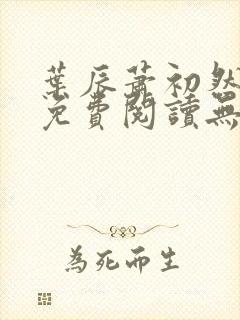 葉辰蕭初然
免費閱讀無
為死而生